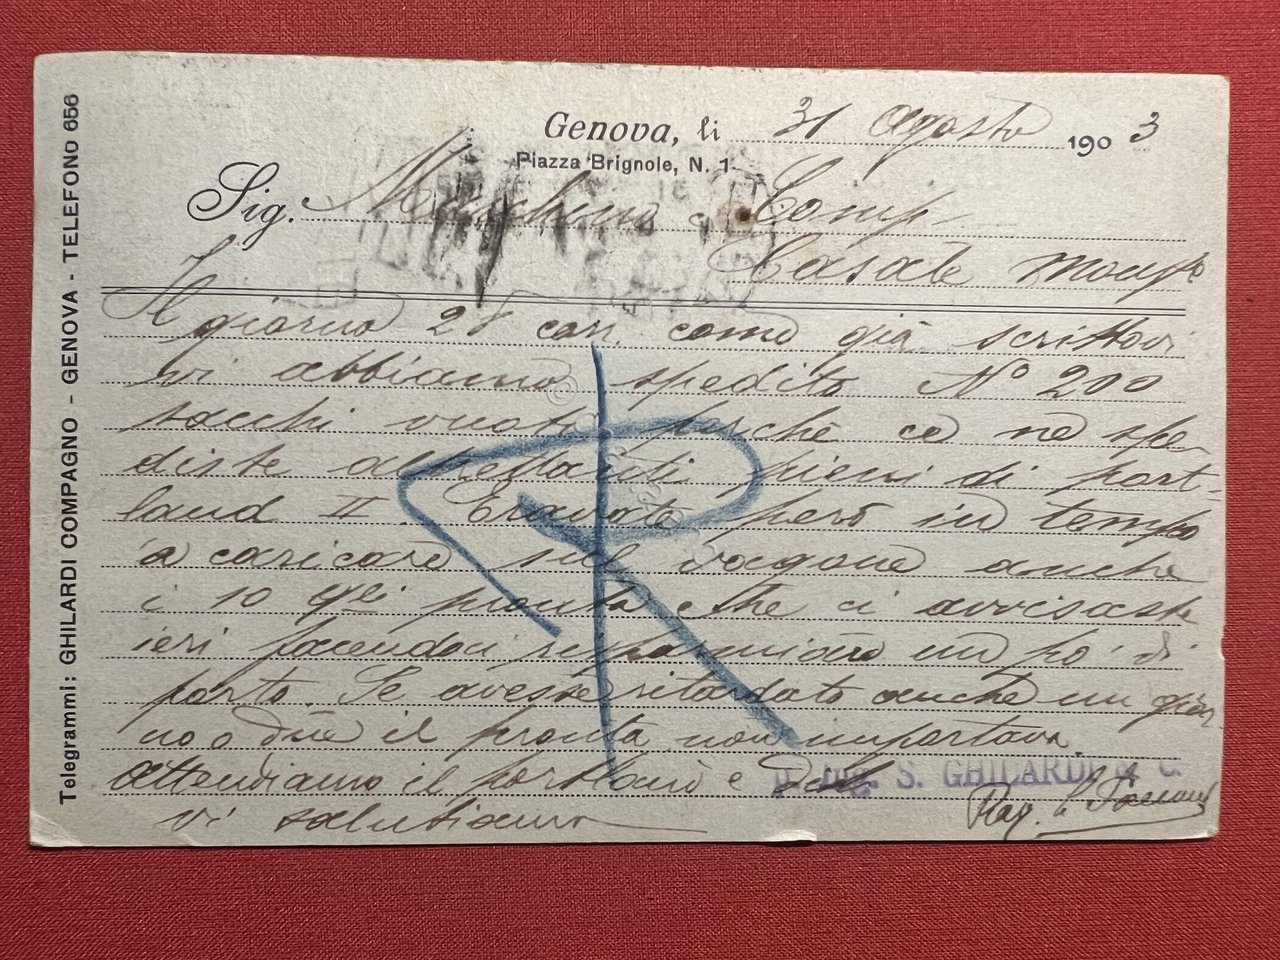 Telegrammi: GHILARDI COMPAGNO - GENOVA - TELEFONO 656
Genova, li 31 agosto 1903
Piazza Brignole, N. 1
Sig. e Comp
Casale Monf
Il giorno 28 corr. come già scrittovi
vi abbiamo spedito No 200
sacchi vuoti perchè ce ne spe-
diste altrettanti pieni di port-
land II. però in tempo
a caricare sul vagone anche
i 10 qli pronta che ci avvisaste
ieri facendoci risparmiare un po' di
porto. Se avesse ritardato anche un gior
no o due il pronta non importava.
Attendiamo il portland e
vi salutiamo
p. Ing. S. GHILARDI & C.
Rag.